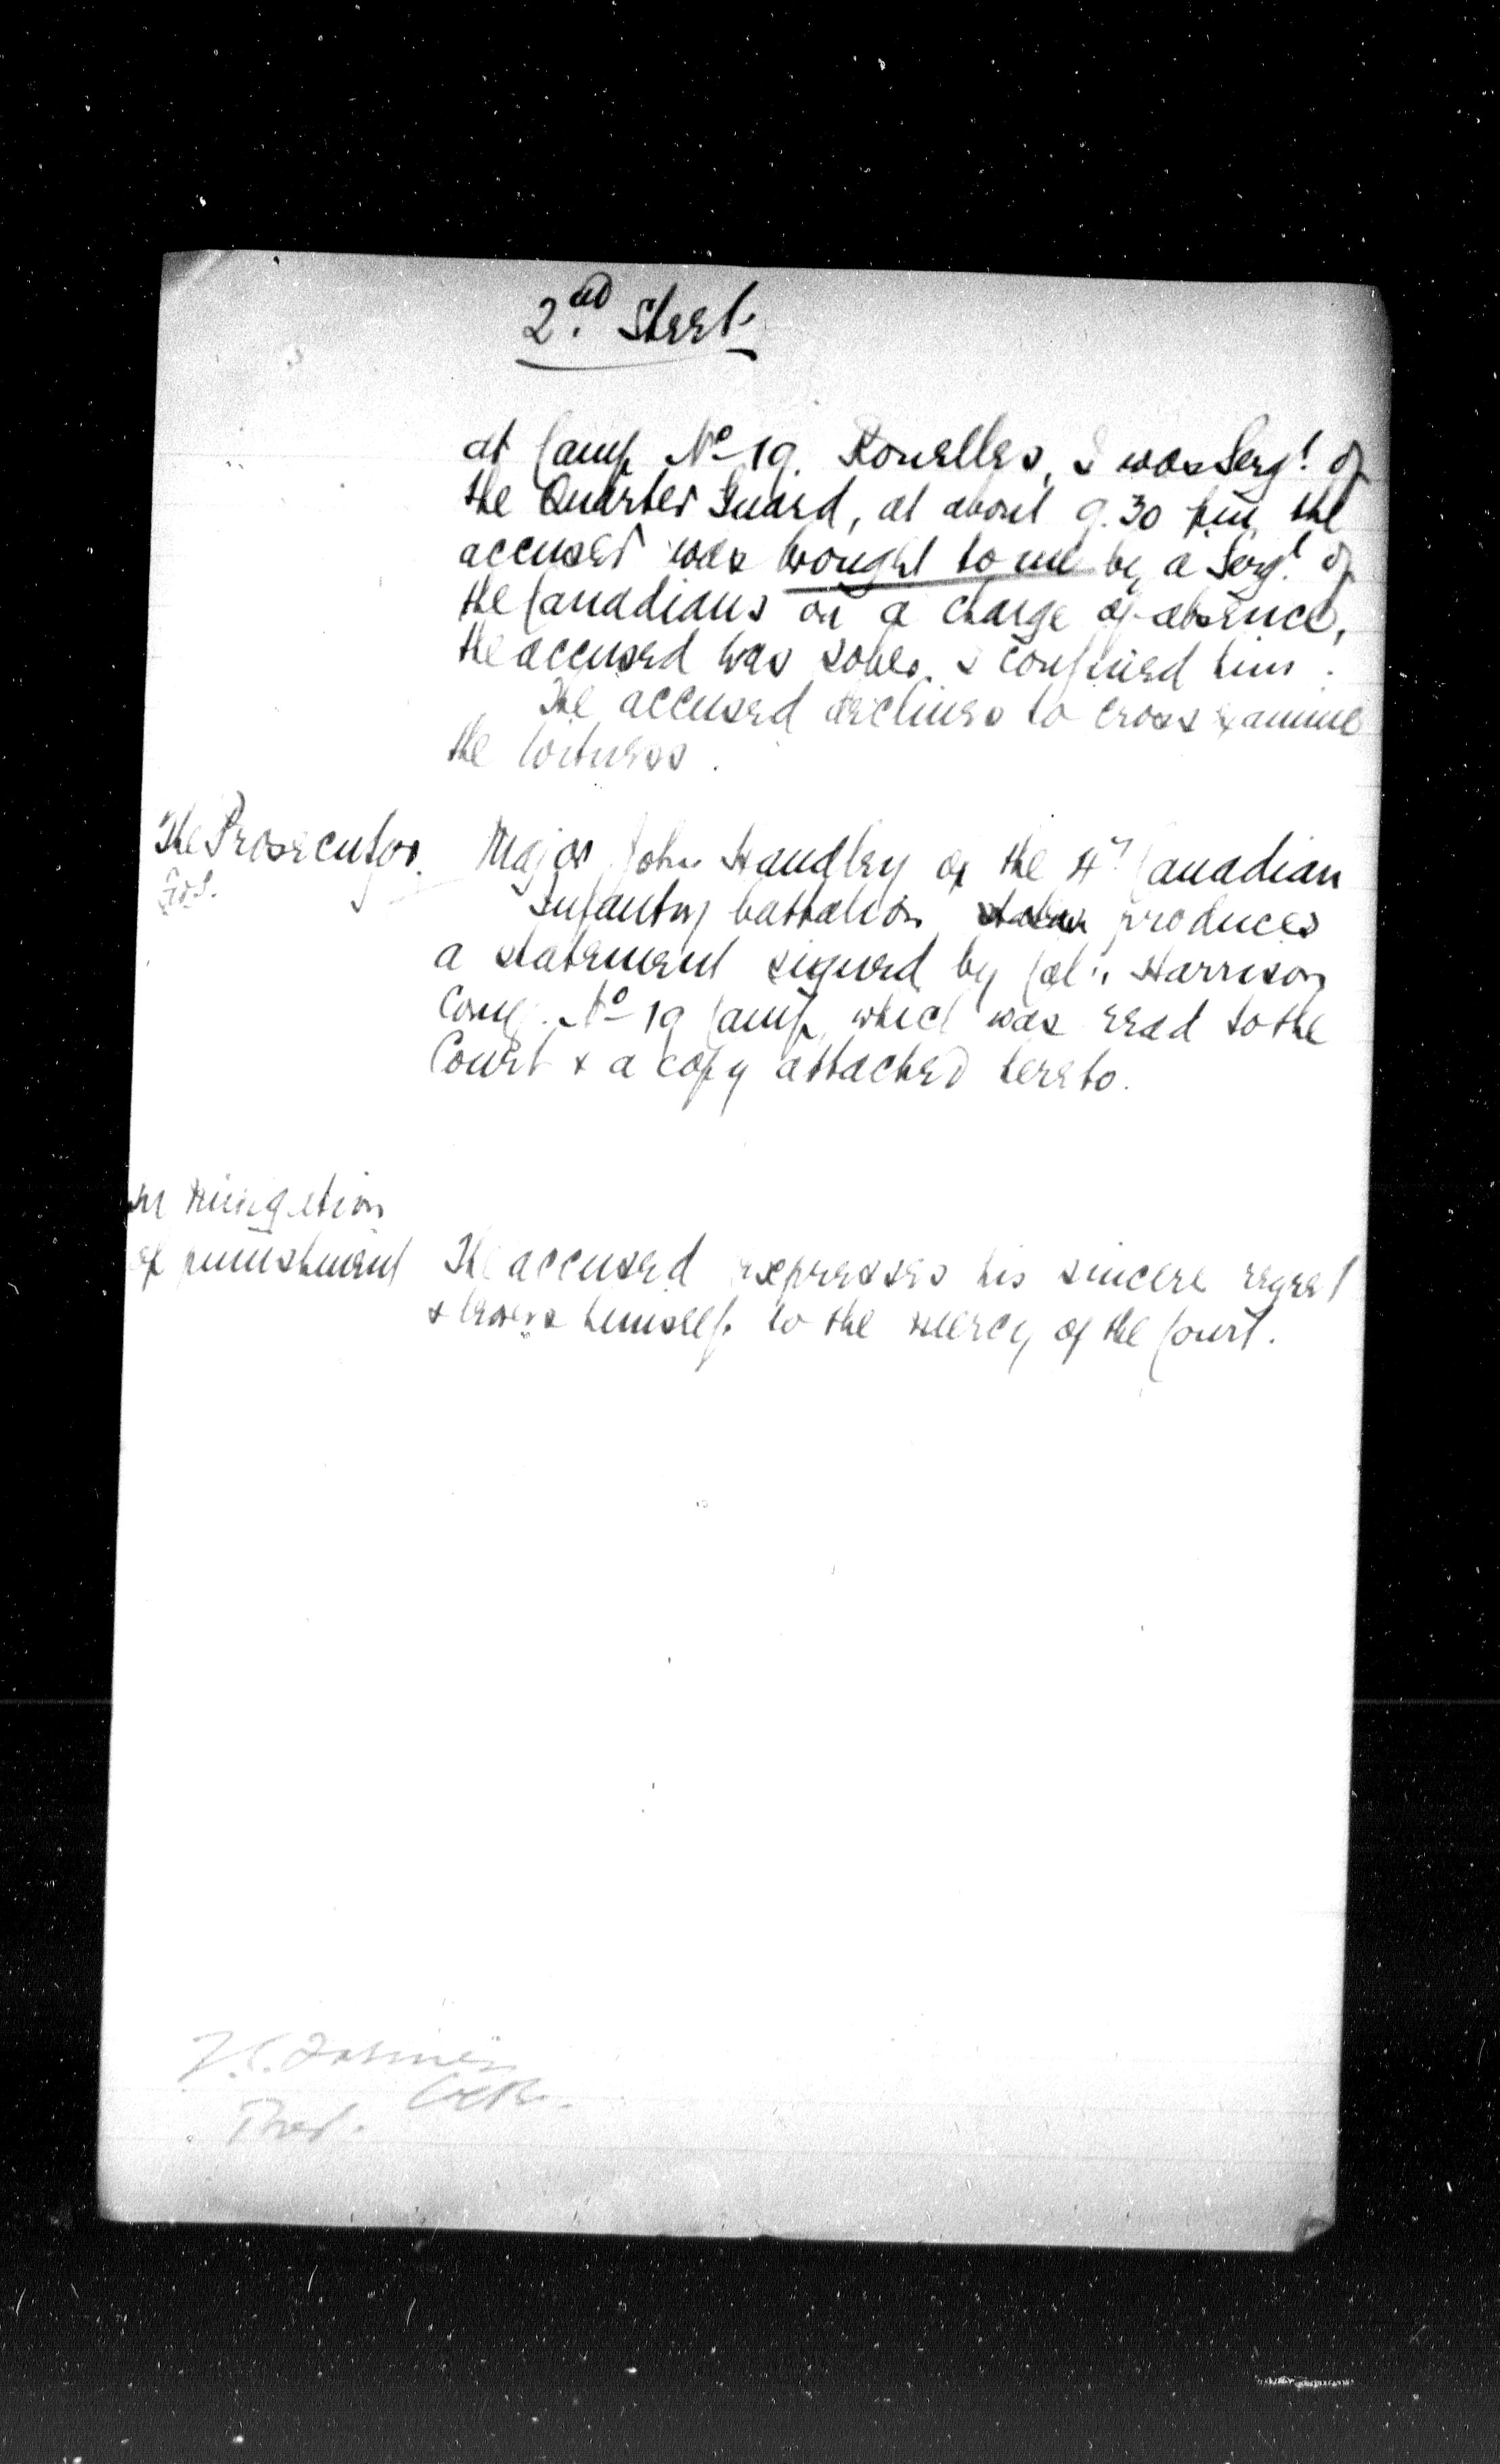 2nd Sheet.
at Camp No 19. Rouelles, I was Sergt of
the Quarter Guard, at about 9.30 pm, the
accused was brought to me by a Sergt of
the Canadians on a charge of absence,
the accused was sober. I confined him.
The accused declines to cross examine
the witness.
The Prosecutor. Major John Handley of the 4th Canadian
Infantry battalion produces
a statement signed by Col. Harrison
Comg. No 19 Camp, which was read to the
Court & a copy attached hereto.
In mitigation
of punishment The accused expresses his sincere regret
& leaves himself to the mercy of the Court.